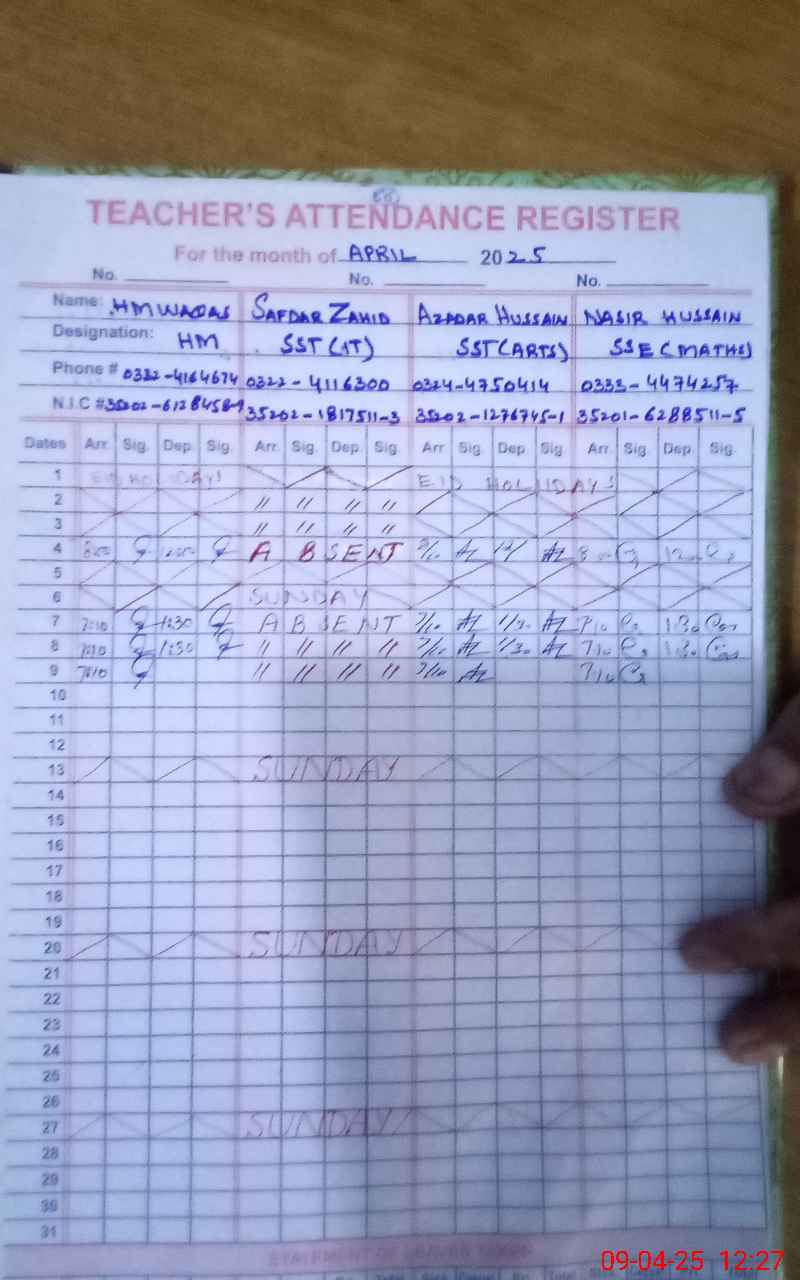 TEACHER'S ATTENDANCE REGISTER
For the month of APRIL 2025
No. No. No.
Name: HM WAQAS SAFDAR ZAHID AZADAR HUSSAIN NASIR HUSSAIN
Designation: HM SST (IT) SST (ARTS) SSE (MATHS)
Phone # 0322-4164674 0322-4116300 0324-4750414 0333-4474257
N.I.C # 35202-1817511-3 35202-1276745-1 35201-6288511-5
Dates Arr. Sig. Dep. Sig. Arr. Sig. Dep. Sig. Arr Sig. Dep. Sig. Arr. Sig. Dep. Sig.
1 EID HOLIDAYS EID HOLIDAYS
2 " " " "
3 " " " "
4 ABSENT
5
6 SUNDAY
7 7:10 1:30 ABSENT 7/10 1/30 7/10 1:30
8 7:10 1:30 " " " " 7/10 1/30 7/10 1:30
9 7:10 " " " " 7/10 7/10
10
11
12
13 SUNDAY
14
15
16
17
18
19
20 SUNDAY
21
22
23
24
25
26
27 SUNDAY
28
29
30
31
09-04-25 12:27